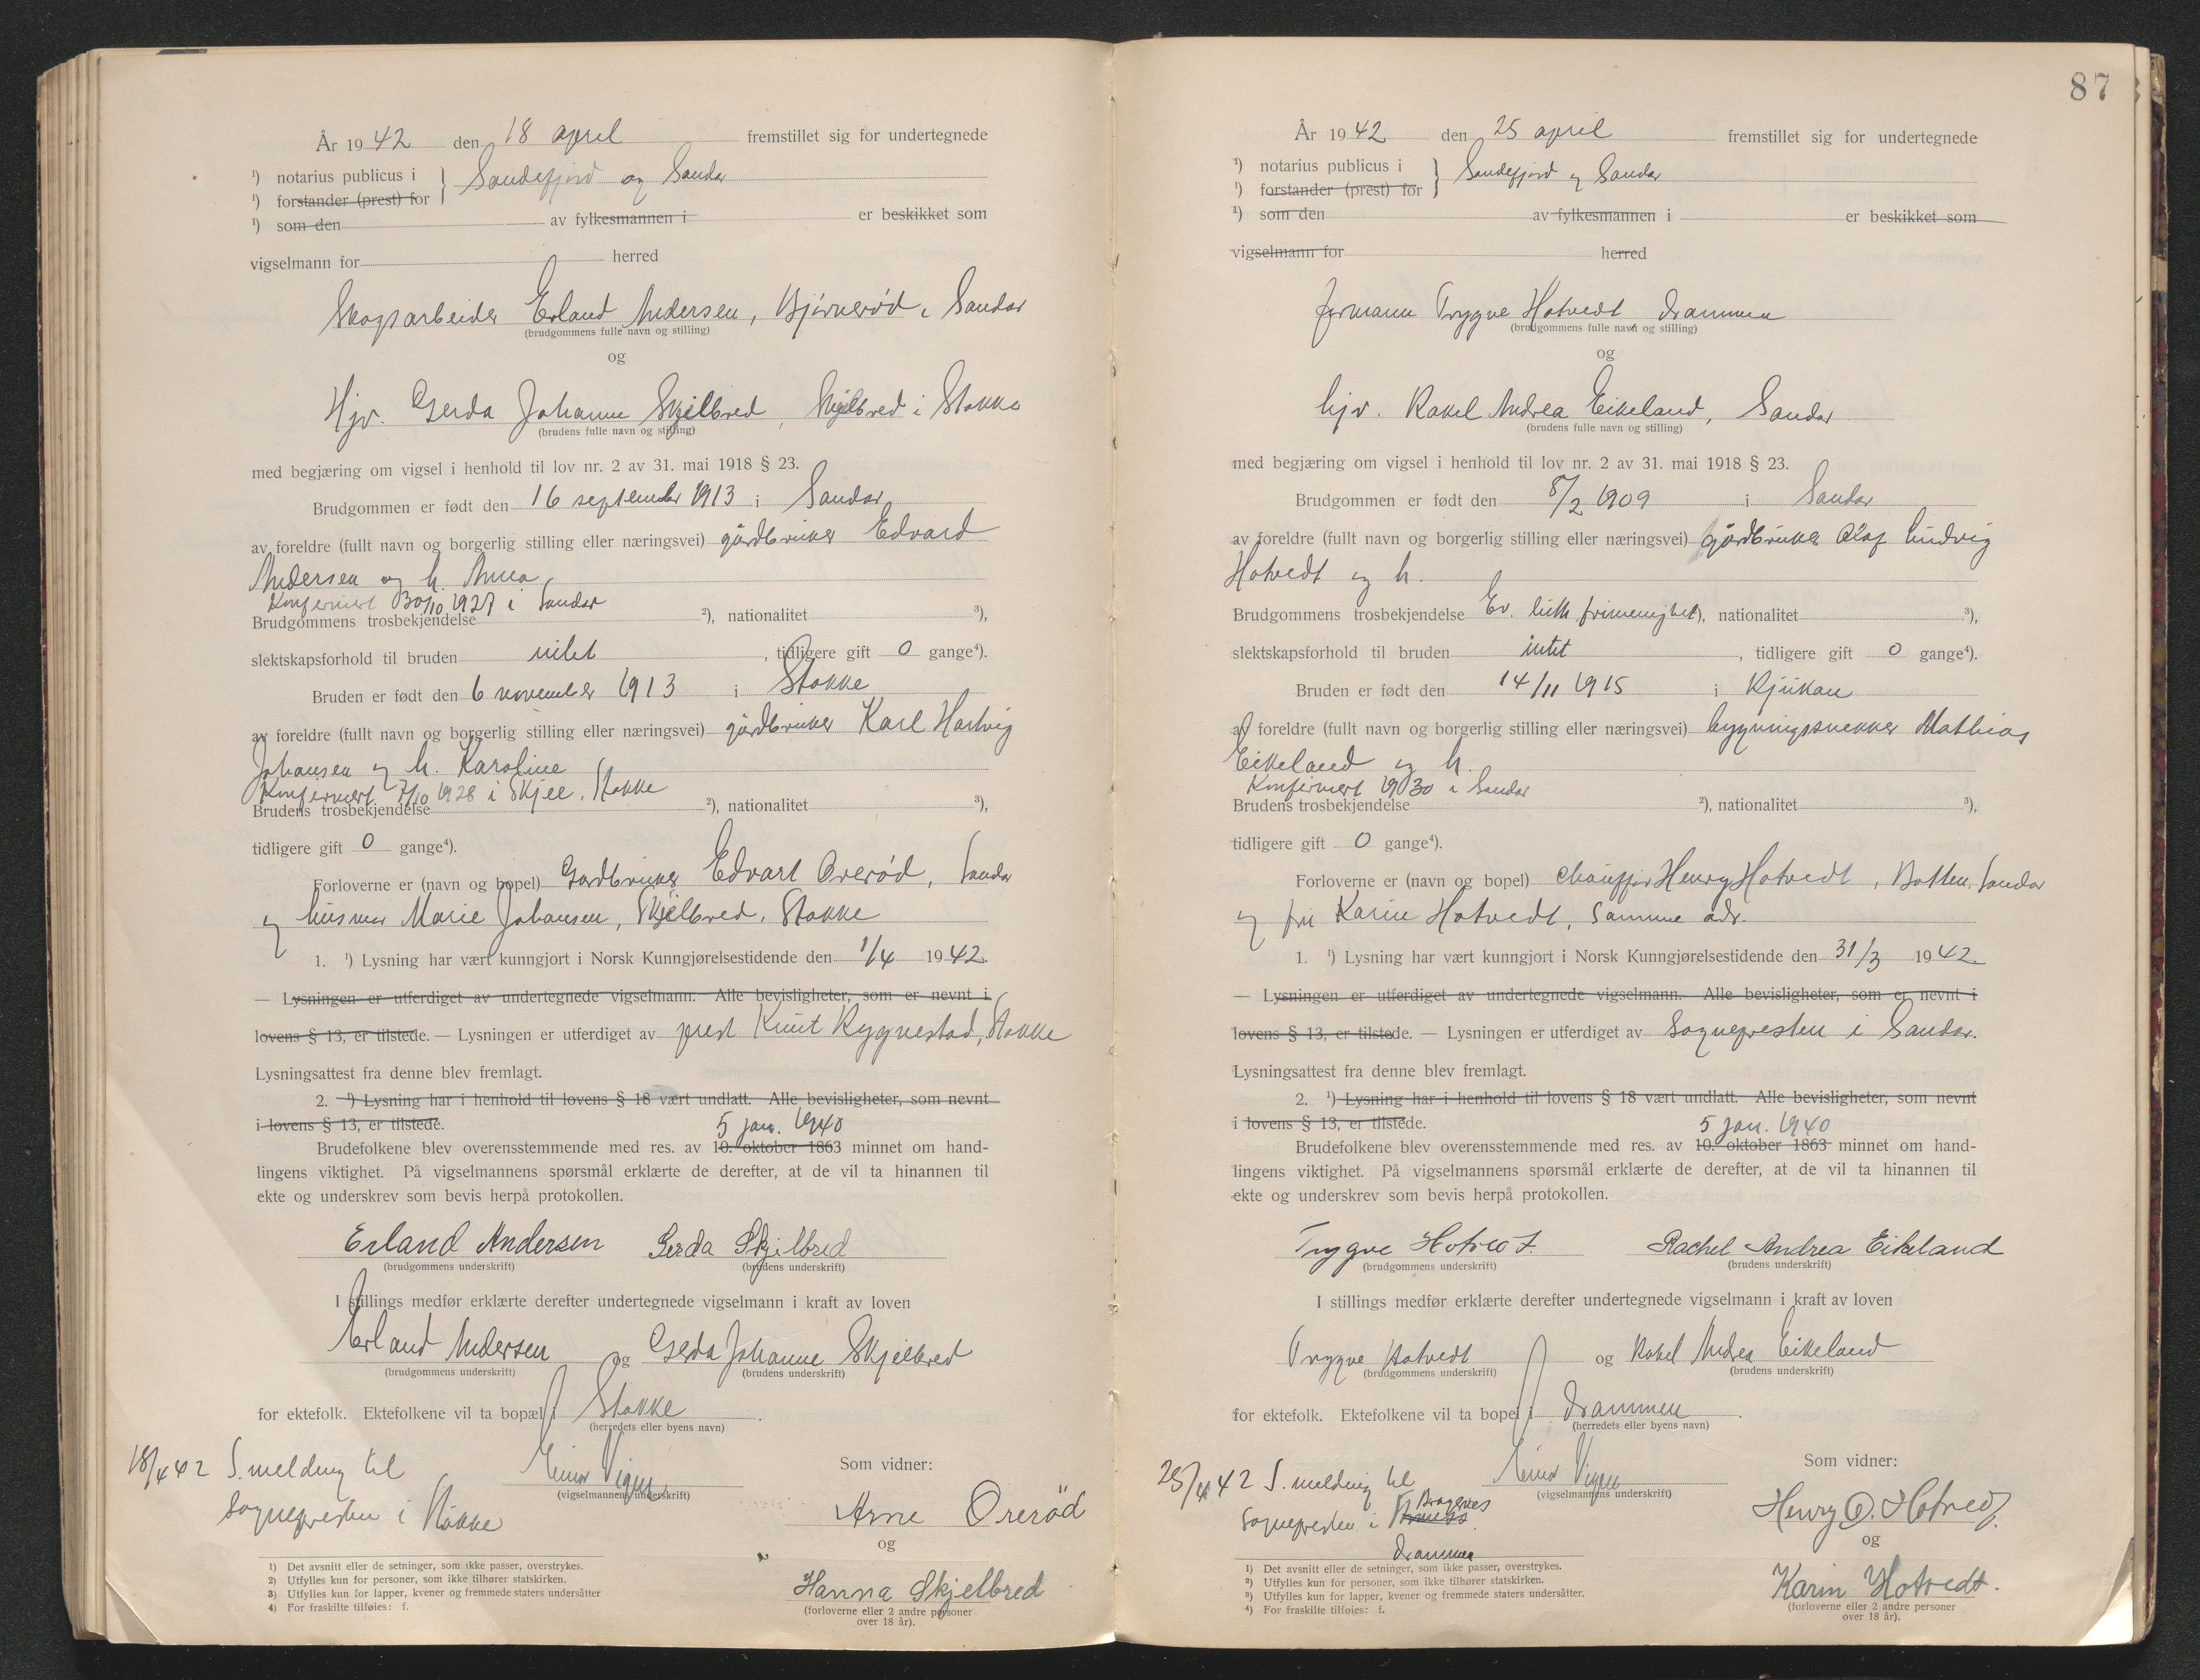 År 1942 den 18 april fremstillet sig for undertegnede
¹) notarius publicus i } Sandefjord og Sandar
¹) forstander (prest) for
¹) som den av fylkesmannen i er beskikket som
vigselmann for herred
Skogsarbeider Erland Andersen, Bjørnerød, Sandar
(brudgommens fulle navn og stilling)
og
Hjv. Gerda Johanne Skjelbred, Skjelbred i Stokke
(brudens fulle navn og stilling)
med begjæring om vigsel i henhold til lov nr. 2 av 31. mai 1918 § 23.
Brudgommen er født den 16 september 1913 i Sandar
av foreldre (fullt navn og borgerlig stilling eller næringsvei) gårdbruker Edvard
Andersen og h. Anna
Konfirmert 30/10 1927 i Sandar
Brudgommens trosbekjendelse ²), nationalitet ³),
slektskapsforhold til bruden intet, tidligere gift 0 gange⁴).
Bruden er født den 6 november 1913 i Stokke
av foreldre (fullt navn og borgerlig stilling eller næringsvei) gårdbruker Karl Hartvig
Johansen og h. Karoline
Konfirmert 7/10 1928 i Skjee, Stokke
Brudens trosbekjendelse ²), nationalitet ³),
tidligere gift 0 gange⁴).
Forloverne er (navn og bopel) Gardbruker Edvart Orerød, Sandar
og husmor Marie Johansen, Skjelbred, Stokke
1. ¹) Lysning har vært kunngjort i Norsk Kunngjørelsestidende den 1/4 1942.
— Lysningen er utferdiget av undertegnede vigselmann. Alle bevisligheter, som er nevnt i
lovens § 13, er tilstede. — Lysningen er utferdiget av prest Knut Rygnestad, Stokke
Lysningsattest fra denne blev fremlagt.
2. ¹) Lysning har i henhold til lovens § 18 vært undlatt. Alle bevisligheter, som nevnt
i lovens § 13, er tilstede. 5 jan. 1940
Brudefolkene blev overensstemmende med res. av 10. oktober 1863 minnet om hand-
lingens viktighet. På vigselmannens spørsmål erklærte de derefter, at de vil ta hinannen til
ekte og underskrev som bevis herpå protokollen.
Erland Andersen Gerda Skjelbred
(brudgommens underskrift) (brudens underskrift)
I stillings medfør erklærte derefter undertegnede vigselmann i kraft av loven
Erland Andersen og Gerda Johanne Skjelbred
(brudgommens underskrift) (brudens underskrift)
for ektefolk. Ektefolkene vil ta bopæl i Stokke.
(herredets eller byens navn)
18/4 42 S. melding til
sognepresten i Stokke
Einar
(vigselmannens underskrift)
Som vidner:
Arne Orerød
og
Hanna Skjelbred
(forloverne eller 2 andre personer
over 18 år).
1) Det avsnitt eller de setninger, som ikke passer, overstrykes.
2) Utfylles kun for personer, som ikke tilhører statskirken.
3) Utfylles kun for lapper, kvener og fremmede staters undersåtter
4) For fraskilte tilføies: f.
87
År 1942 den 25 april fremstillet sig for undertegnede
¹) notarius publicus i } Sandefjord og Sandar
¹) forstander (prest) for
¹) som den av fylkesmannen i er beskikket som
vigselmann for herred
formann Trygve Hotvedt Drammen
(brudgommens fulle navn og stilling)
og
hjv. Rakel Andrea Eikeland, Sandar
(brudens fulle navn og stilling)
med begjæring om vigsel i henhold til lov nr. 2 av 31. mai 1918 § 23.
Brudgommen er født den 8/2 1909 i Sandar
av foreldre (fullt navn og borgerlig stilling eller næringsvei) Gårdbruker Olaf Ludvig
Hotvedt og h.
Brudgommens trosbekjendelse Ev. luth frimenighet), nationalitet ³),
slektskapsforhold til bruden intet, tidligere gift 0 gange⁴).
Bruden er født den 14/11 1915 i Rjukan
av foreldre (fullt navn og borgerlig stilling eller næringsvei) bygningssnekker Mathias
Eikeland og h.
Konfirmert 1930 i Sandar
Brudens trosbekjendelse ²), nationalitet ³),
tidligere gift 0 gange⁴).
Forloverne er (navn og bopel) chauffør Henry Hotvedt, Botten, Sandar
og fru Karin Hotvedt, samme adr.
1. ¹) Lysning har vært kunngjort i Norsk Kunngjørelsestidende den 31/3 1942.
— Lysningen er utferdiget av undertegnede vigselmann. Alle bevisligheter, som er nevnt i
lovens § 13, er tilstede. — Lysningen er utferdiget av Sognepresten i Sandar.
Lysningsattest fra denne blev fremlagt.
2. ¹) Lysning har i henhold til lovens § 18 vært undlatt. Alle bevisligheter, som nevnt
i lovens § 13, er tilstede. 5 jan. 1940
Brudefolkene blev overensstemmende med res. av 10. oktober 1863 minnet om hand-
lingens viktighet. På vigselmannens spørsmål erklærte de derefter, at de vil ta hinannen til
ekte og underskrev som bevis herpå protokollen.
Trygve Hotvedt. Rachel Andrea Eikeland
(brudgommens underskrift) (brudens underskrift)
I stillings medfør erklærte derefter undertegnede vigselmann i kraft av loven
Trygve Hotvedt og Rakel Andrea Eikeland
(brudgommens underskrift) (brudens underskrift)
for ektefolk. Ektefolkene vil ta bopel i Drammen.
(herredets eller byens navn)
25/4 42 S. melding til
sognepresten i Bragernes
Drammen
Einar
(vigselmannens underskrift)
Som vidner:
Henry O. Hotvedt
og
Karin Hotvedt.
(forloverne eller 2 andre personer
over 18 år).
1) Det avsnitt eller de setninger, som ikke passer, overstrykes.
2) Utfylles kun for personer, som ikke tilhører statskirken.
3) Utfylles kun for lapper, kvener og fremmede staters undersåtter.
4) For fraskilte tilføies: f.